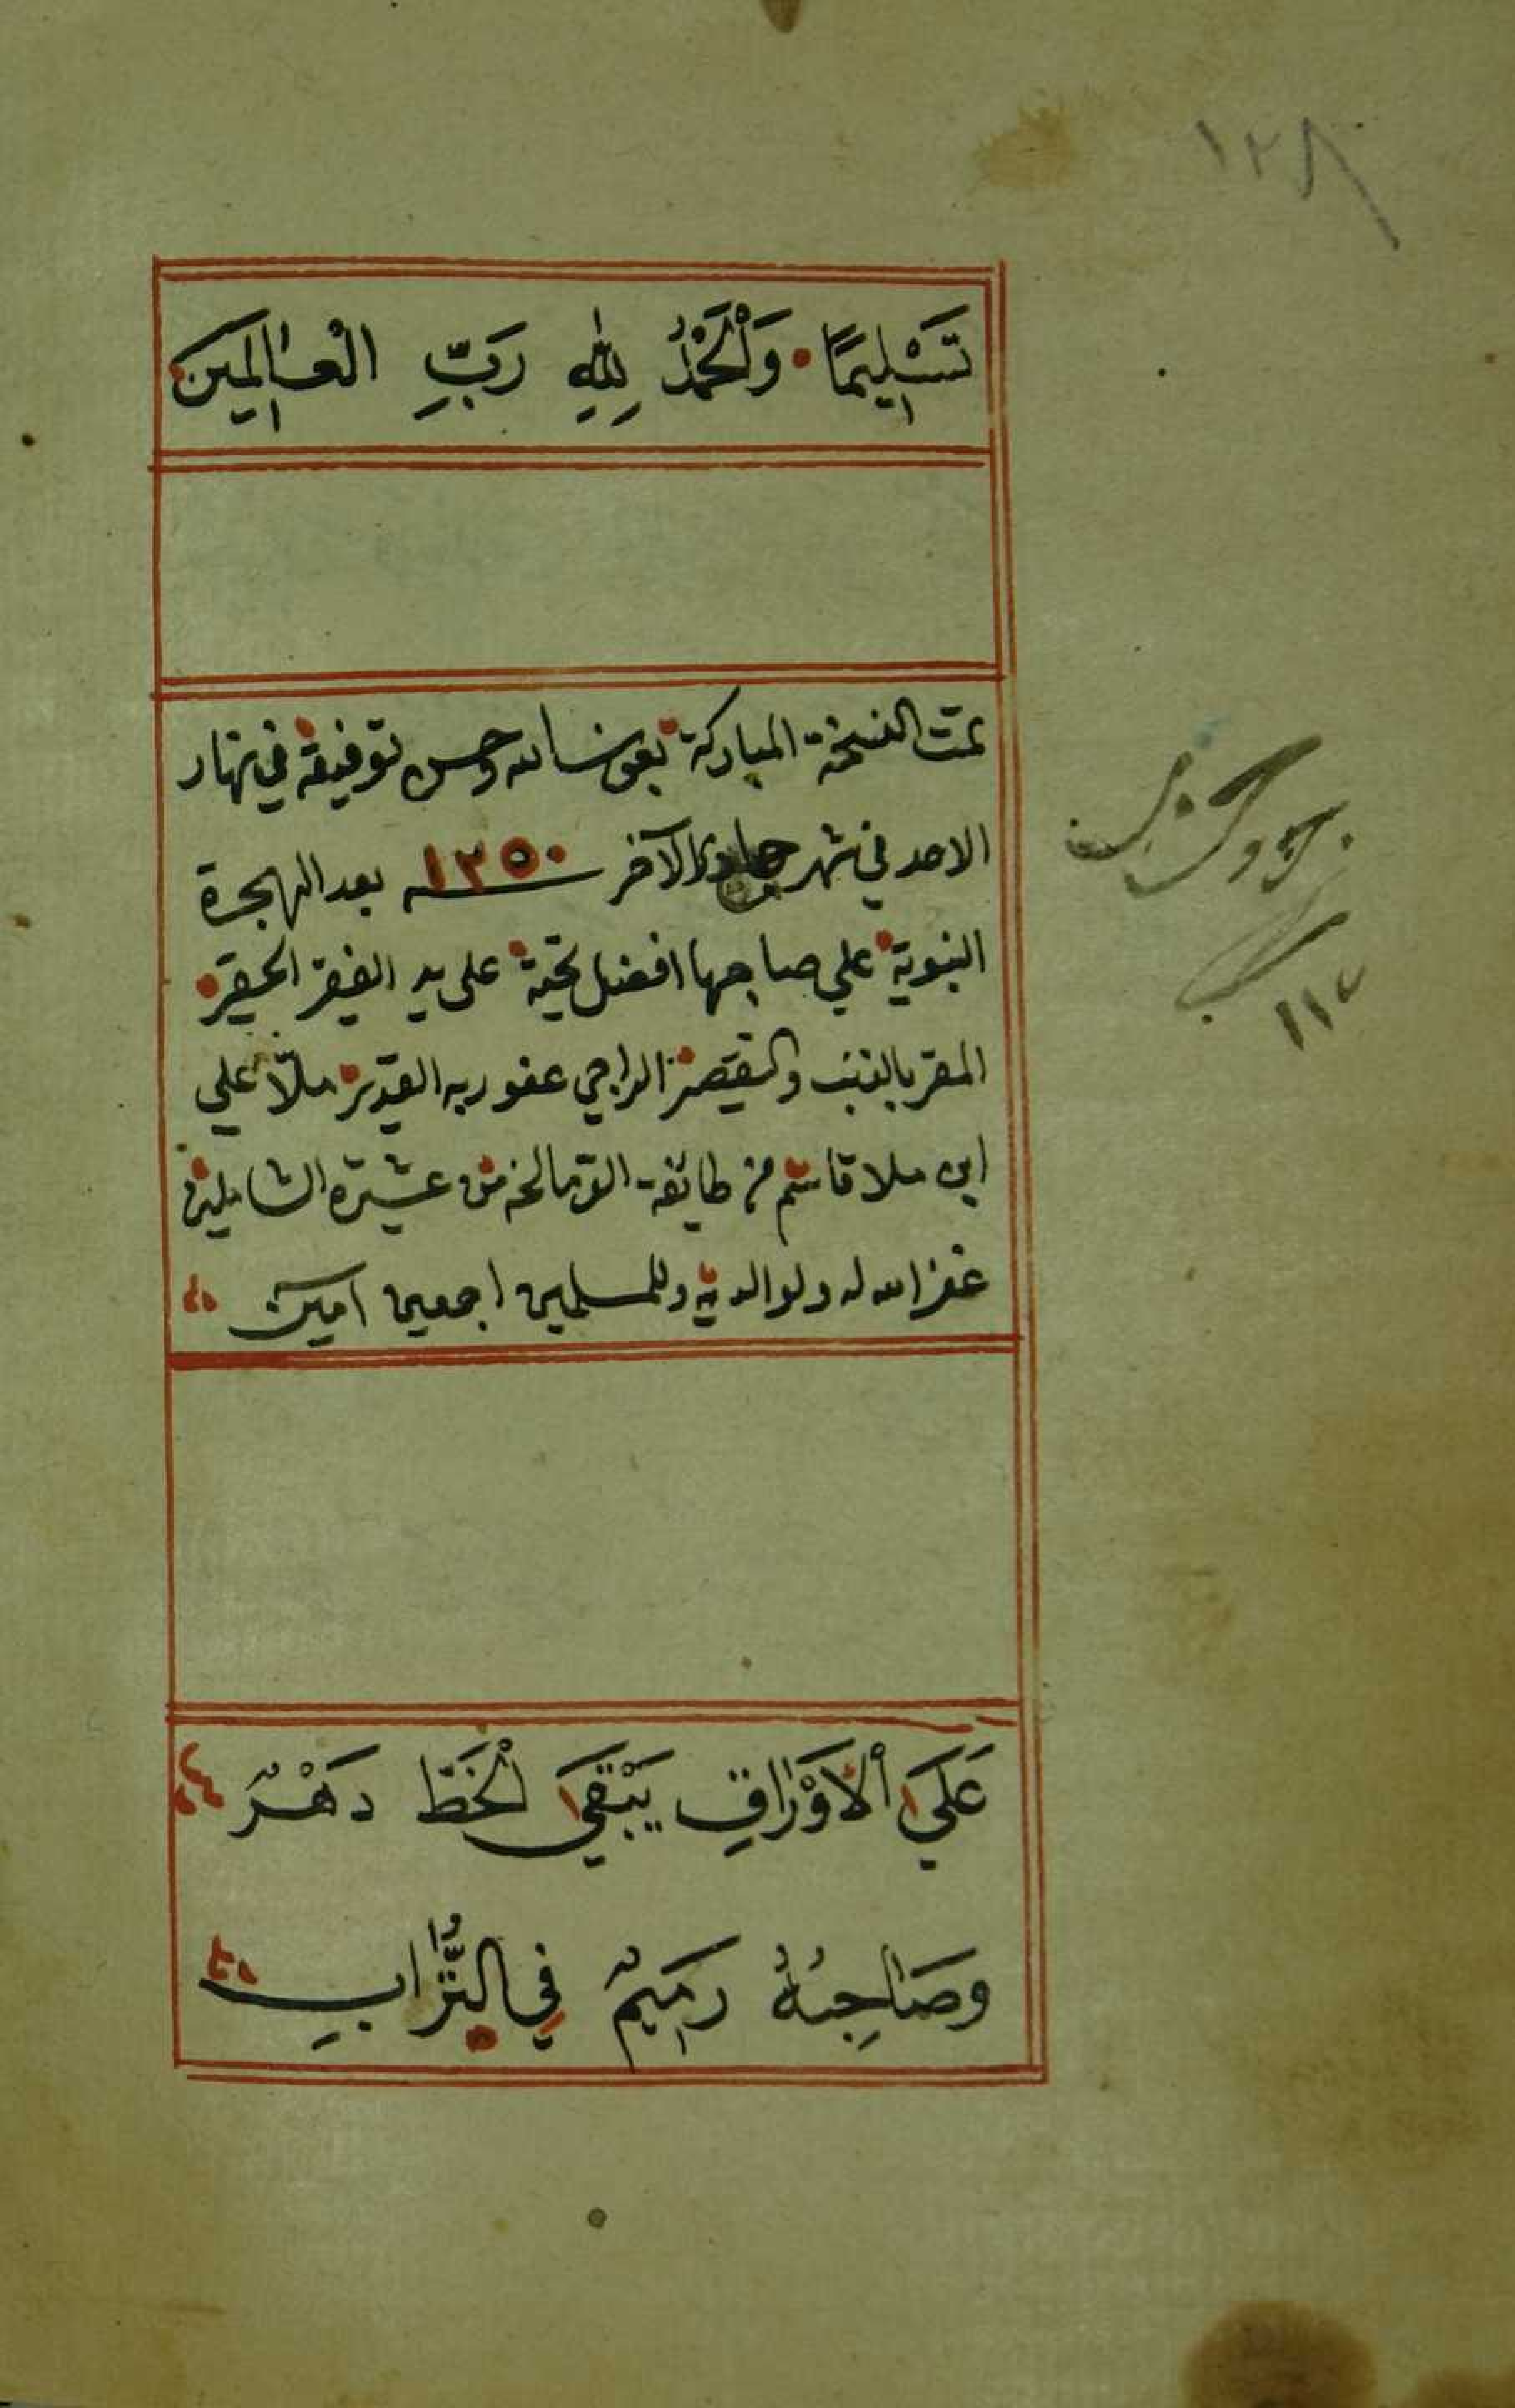 ١٢٨
تَسْلِيمًا • وَالْحَمْدُ لِلّٰهِ رَبِّ الْعٰالَمِينَ
تمت النسخة المباركة بعون الله وحسن توفيقه في نهار
الاحد في شهر جمادى الآخر سنه ١٣٥٠ بعد الهجرة
النبوية علي صاحبها افضل تحية على يد الفقير الحقير
المقر بالذنب والتقصير الراجي عفو ربه القدير ملّا علي
ابن ملا قاسم من طايفة من عشيرة
غفر الله له ولوالديه وللمسلمين اجمعين آمين
عَلَى الْأَوْرٰاقِ يَبْقَى الْخَطّ دَهْرٌ
وصَاحِبُهُ رَمِيمٌ فِي التُّرٰابِ
١١٧